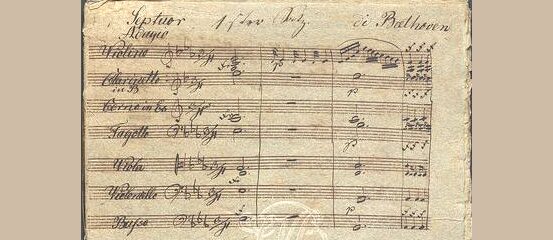 Septuor 1ster Satz. di Beethoven
Adagio
Violino
Clarinetto
in B
Corno in Es
Fagotto
Viola
Violoncello
Basso